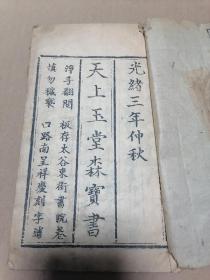 光緒三年仲秋
天上玉堂森寶書
淨手翻閱 板存太谷東街書院巷
慎勿穢褻 口路南呈祥慶刻字鋪